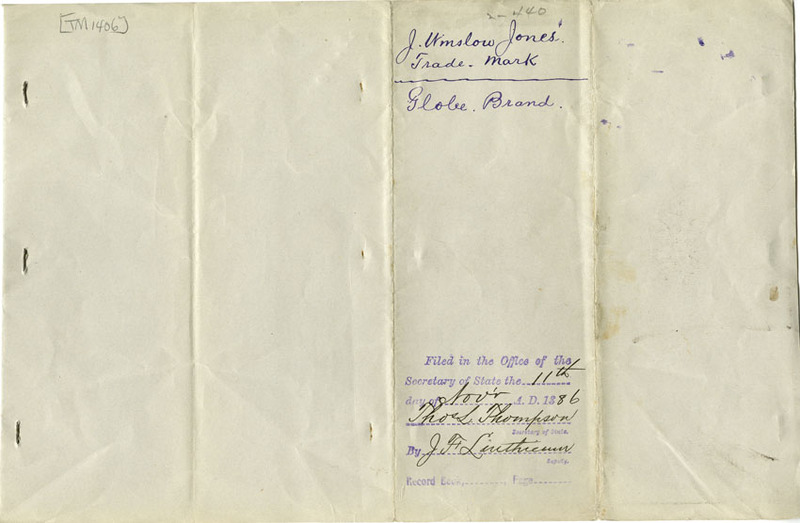 [TM 1406]
2-440
J. Winslow Jones'
Trade-Mark
Globe. Brand.
Filed in the Office of the
Secretary of State the 11th
day of Nov'r A. D. 1886
Thos L. Thompson
Secretary of State.
By J F Linthicum
Deputy.
Record Book, ........, Page ........